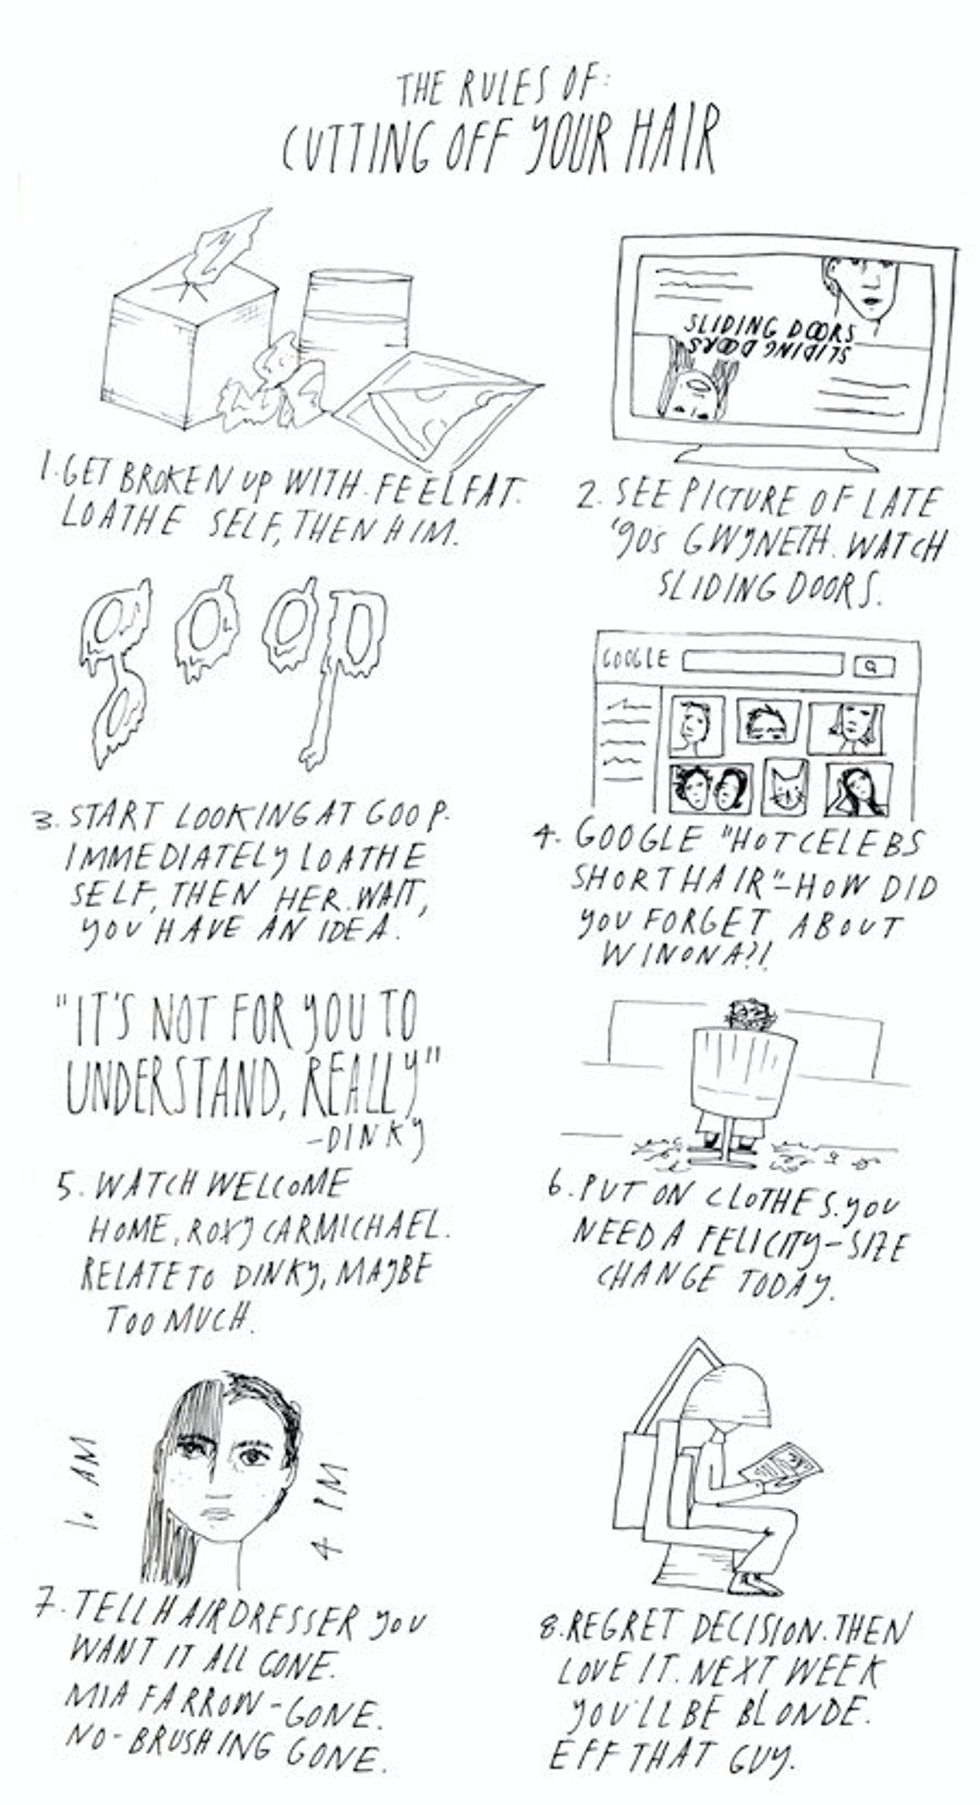 THE RULES OF:
CUTTING OFF YOUR HAIR
1. GET BROKEN UP WITH. FEEL FAT.
LOATHE SELF, THEN HIM.
SLIDING DOORS
SLIDING DOORS
2. SEE PICTURE OF LATE
'90s GWYNETH. WATCH
SLIDING DOORS.
goop
3. START LOOKING AT GOOP.
IMMEDIATELY LOATHE
SELF, THEN HER. WAIT,
YOU HAVE AN IDEA.
GOOGLE
4. GOOGLE "HOT CELEBS
SHORT HAIR" - HOW DID
YOU FORGET ABOUT
WINONA?!
"IT'S NOT FOR YOU TO
UNDERSTAND, REALLY"
-DINKY
5. WATCH WELCOME
HOME, ROXY CARMICHAEL.
RELATE TO DINKY, MAYBE
TOO MUCH.
6. PUT ON CLOTHES. YOU
NEED A FELICITY-SIZE
CHANGE TODAY.
10 AM
4 PM
7. TELL HAIRDRESSER YOU
WANT IT ALL GONE.
MIA FARROW-GONE.
NO-BRUSHING GONE.
8. REGRET DECISION. THEN
LOVE IT. NEXT WEEK
YOU'LL BE BLONDE.
EFF THAT GUY.